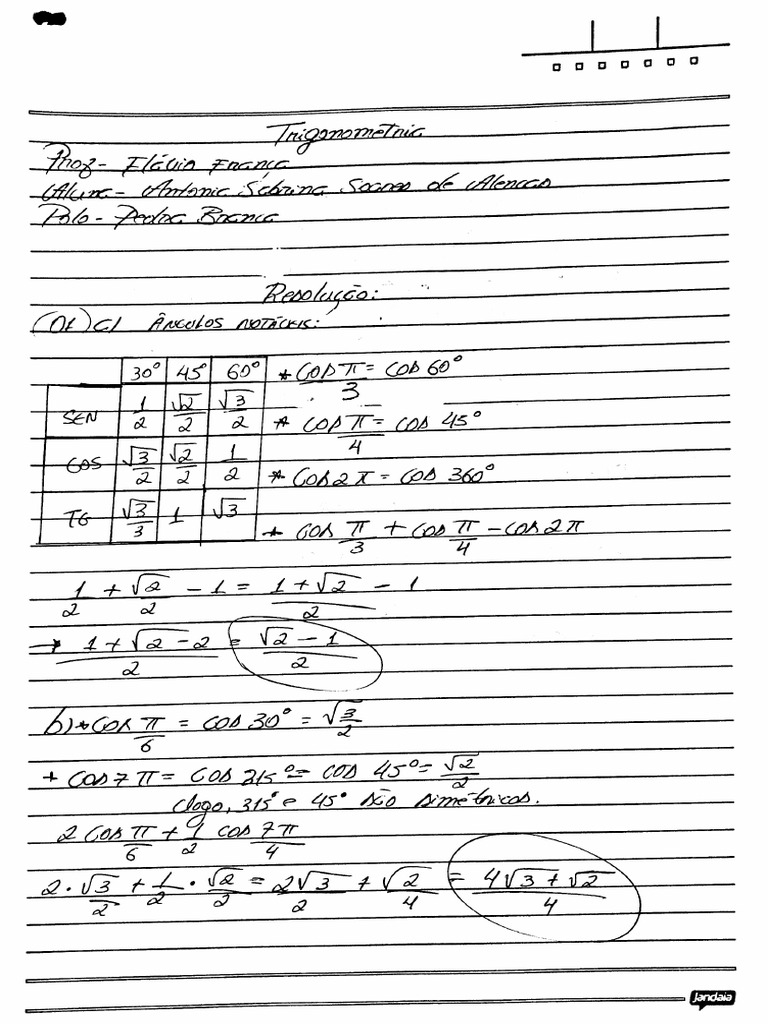 Trigonometria
Prof- Flávio França
Aluna- Antonia Sabrina Soares de Alencar
Polo- Pedra Branca
Resolução:
(01) a) Ângulos notáveis:
30° 45° 60°
SEN 1/2 √2/2 √3/2
COS √3/2 √2/2 1/2
TG √3/3 1 √3
* cos π/3 = cos 60°
* cos π/4 = cos 45°
* cos 2π = cos 360°
* cos π/3 + cos π/4 - cos 2π
1/2 + √2/2 - 1 = (1 + √2)/2 - 1
→ (1 + √2 - 2)/2 = (√2 - 1)/2
b) * cos π/6 = cos 30° = √3/2
+ cos 7π = cos 315° = cos 45° = √2/2
Logo, 315° e 45° são simétricos.
2 cos π/6 + 1/2 cos 7π/4
2 · √3/2 + 1/2 · √2/2 = 2√3/2 + √2/4 = (4√3 + √2)/4
jandaia